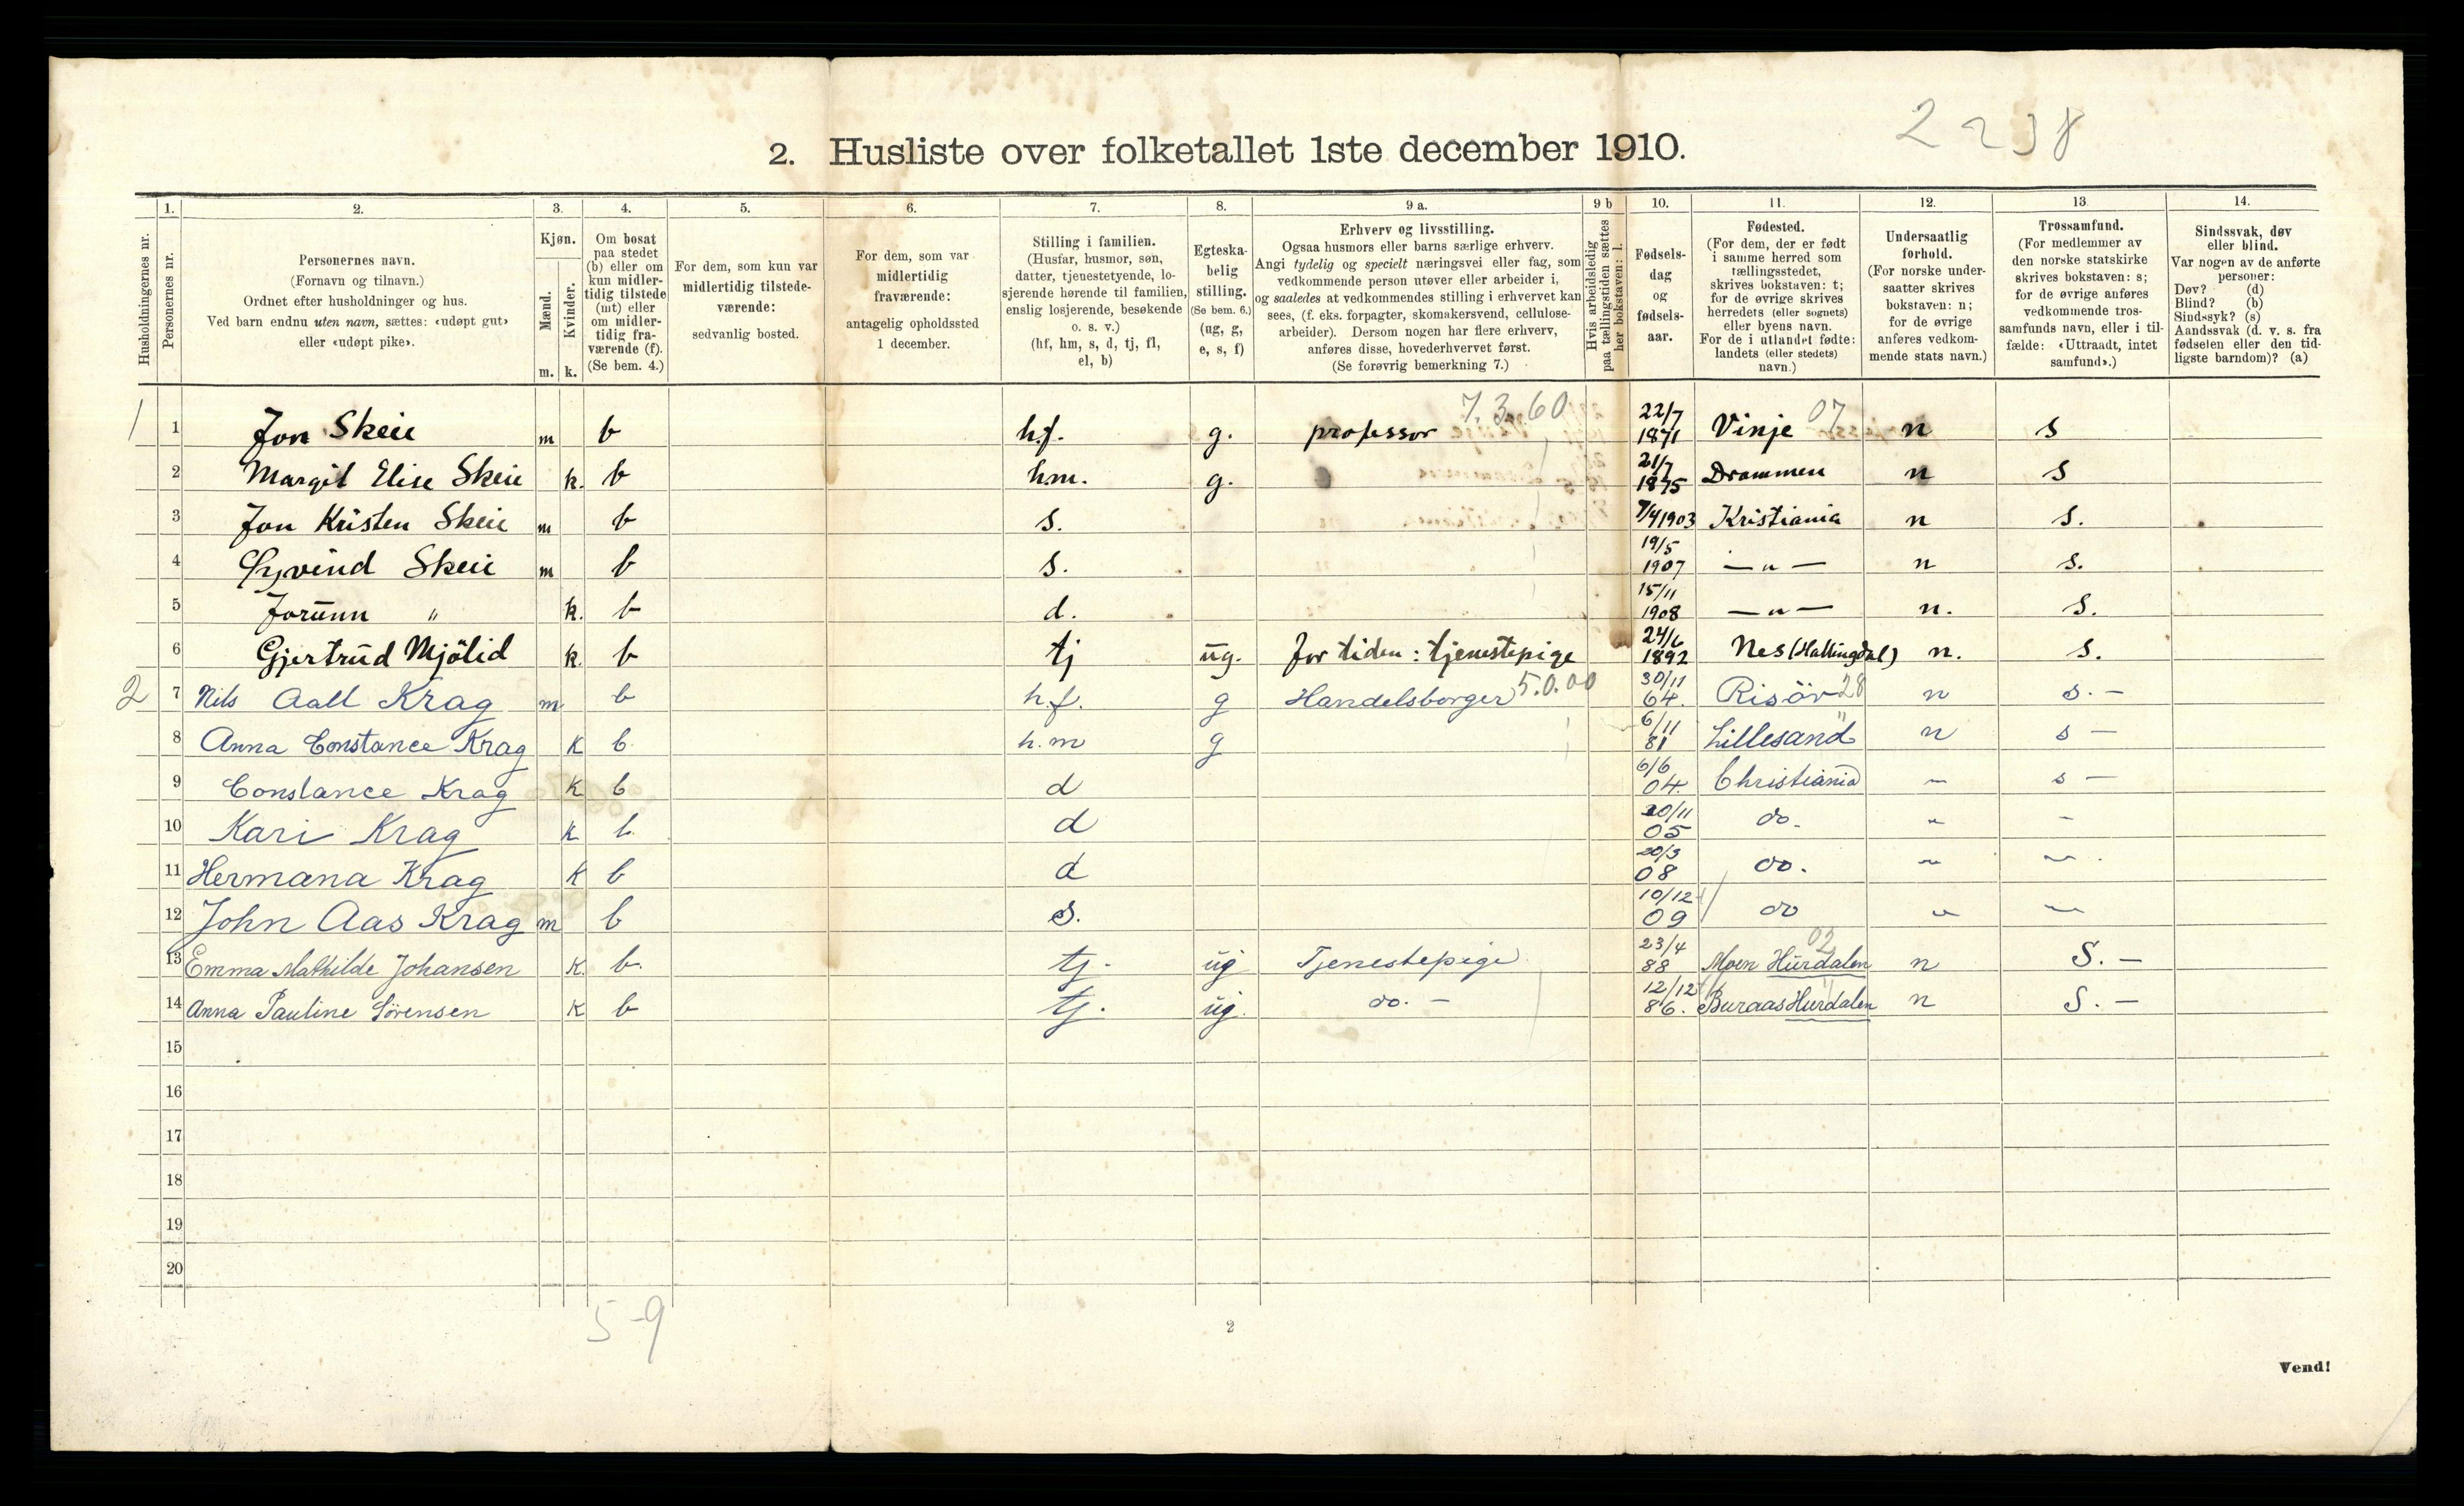 2238
2. Husliste over folketallet 1ste december 1910.
1. 2. 3. 4. 5. 6. 7. 8. 9 a. 9 b 10. 11. 12. 13. 14.
Husholdningernes nr.
Personernes nr.
Personernes navn.
(Fornavn og tilnavn.)
Ordnet efter husholdninger og hus.
Ved barn endnu uten navn, sættes: «udøpt gut»
eller «udøpt pike».
Kjøn.
Mænd.
Kvinder.
m. k.
Om bosat
paa stedet
(b) eller om
kun midler-
tidig tilstede
(mt) eller
om midler-
tidig fra-
værende (f).
(Se bem. 4.)
For dem, som kun var
midlertidig tilstede-
værende:
sedvanlig bosted.
For dem, som var
midlertidig
fraværende:
antagelig opholdssted
1 december.
Stilling i familien.
(Husfar, husmor, søn,
datter, tjenestetyende, lo-
sjerende hørende til familien,
enslig losjerende, besøkende
o. s. v.)
(hf, hm, s, d, tj, fl,
el, b)
Egteska-
belig
stilling.
(Se bem. 6.)
(ug, g,
e, s, f)
Erhverv og livsstilling.
Ogsaa husmors eller barns særlige erhverv.
Angi tydelig og specielt næringsvei eller fag, som
vedkommende person utøver eller arbeider i,
og saaledes at vedkommendes stilling i erhvervet kan
sees, (f. eks. forpagter, skomakersvend, cellulose-
arbeider). Dersom nogen har flere erhverv,
anføres disse, hovederhvervet først.
(Se forøvrig bemerkning 7.)
Hvis arbeidsledig
paa tællingstiden sættes
her bokstaven: l.
Fødsels-
dag
og
fødsels-
aar.
Fødested.
(For dem, der er født
i samme herred som
tællingsstedet,
skrives bokstaven: t;
for de øvrige skrives
herredets (eller sognets)
eller byens navn.
For de i utlandet fødte:
landets (eller stedets)
navn.)
Undersaatlig
forhold.
(For norske under-
saatter skrives
bokstaven: n;
for de øvrige
anføres vedkom-
mende stats navn.)
Trossamfund.
(For medlemmer av
den norske statskirke
skrives bokstaven: s;
for de øvrige anføres
vedkommende tros-
samfunds navn, eller i til-
fælde: «Uttraadt, intet
samfund».)
Sindssvak, døv
eller blind.
Var nogen av de anførte
personer:
Døv? (d)
Blind? (b)
Sindssyk? (s)
Aandssvak (d. v. s. fra
fødselen eller den tid-
ligste barndom)? (a)
1 1 Jon Skeie m b h.f. g. professor 7.3.60 22/7 1871 Vinje 07 n s
2 Margit Elise Skeie k. b hm. g. 21/7 1875 Drammen n s
3 Jon Kristen Skeie m b s. 7/4 1903 Kristiania n s.
4 Øyvind Skeie m b s. 19/5 1907 — " — n s.
5 Jorunn " k. b d. 15/11 1908 — " — n. s.
6 Gjertrud Mjölid k. b tj ug. for tiden: tjenestepige 24/6 1892 Nes (Hallingdal) n. s.
2 7 Nils Aall Krag m b h.f. g Handelsborger 5.0.00 30/11 64. Risör 28 n s. –
8 Anna Constance Krag K b h.m g 6/11 81 Lillesand " n s –
9 Constance Krag K b d 6/6 04. Christiania " s –
10 Kari Krag K b d 20/11 05 do. " –
11 Hermana Krag K b d 20/3 08 do. " "
12 John Aas Krag m b s. 10/12 09 do " "
13 Emma Mathilde Johansen K. b. tj. ug Tjenestepige 23/4 88 Moen Hurdalen 02 n S. –
14 Anna Pauline Sörensen K b tj. ug. do. – 12/12 86. Buraas Hurdalen " n S. –
15
16
17
18
19
20
5-9
2
Vend!